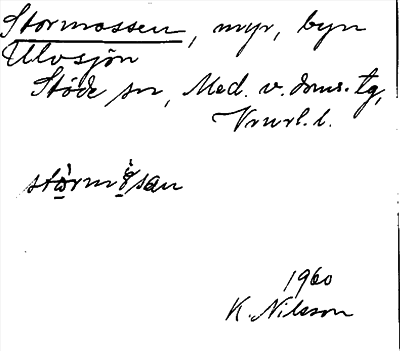 Stormossen, myr, byn
Ulvsjön
Stöde sn, Med. v. doms. tg,
Vnrl. l.
stòrmåsan
1960
K. Nilsson